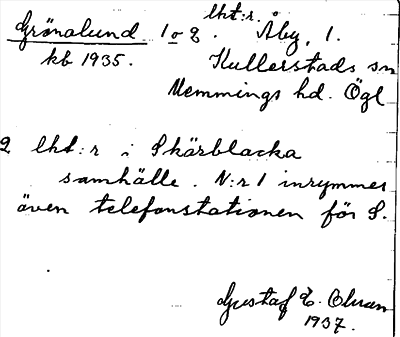 lht:r.
Grönalund 1 o 2. Åby, 1.
kb 1935. Kullerstads sn
Memmings hd. Ögl
2 lht:r i Skärblacka
samhälle. N:r 1 inrymmer
även telefonstationen för S.
Gustaf E. Ohrn
1937.